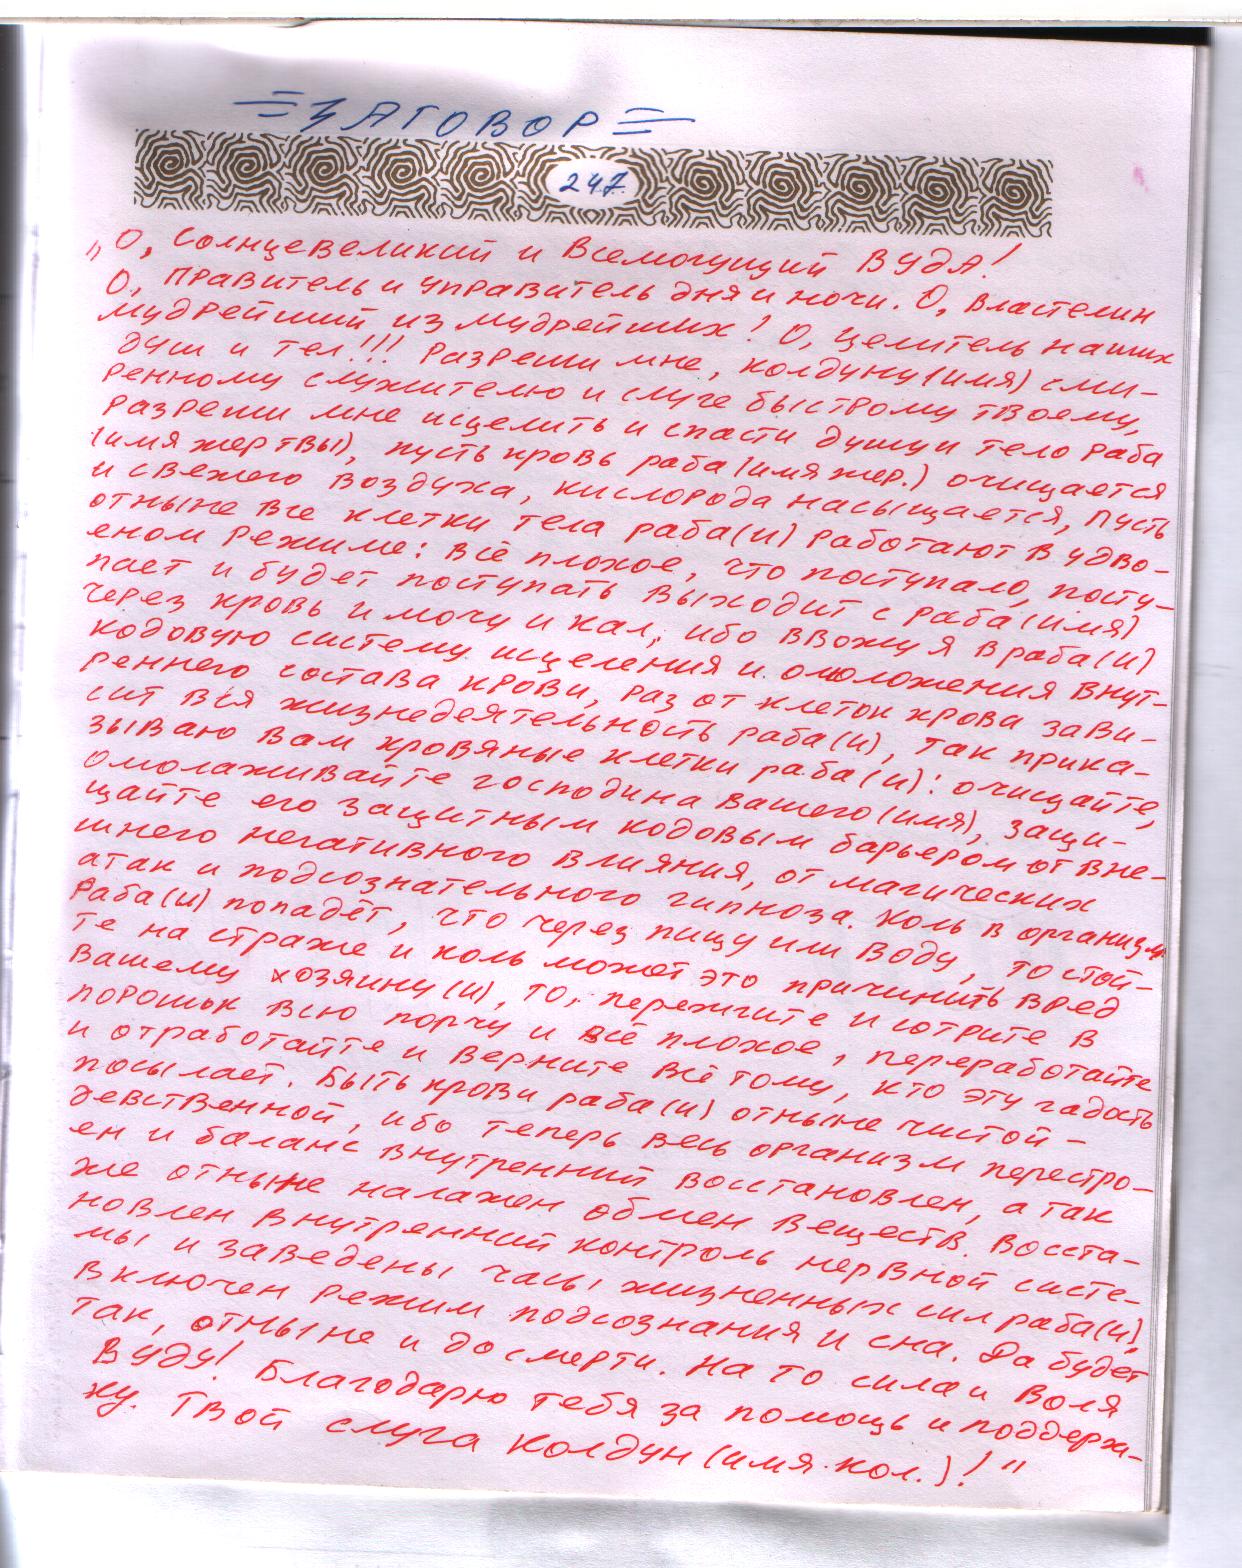 ЗАГОВОР
247.
„О, Солнцевеликий и Всемогущий ВУДА!
О, правитель и управитель дня и ночи. О, властелин
мудрейший из мудрейших! О, целитель наших
душ и тел!!! Разреши мне, колдуну (имя) сми-
ренному служителю и слуге быстрому твоему,
разреши мне исцелить и спасти душу и тело раба
(имя жертвы), пусть кровь раба (имя жер.) очищается
и свежего воздуха, кислорода насыщается, пусть
отныне все клетки тела раба(и) работают в удво-
еном режиме: всё плохое, что поступало, посту-
пает и будет поступать выходит с раба (имя)
через кровь и мочу и кал, ибо ввожу я в раба(и)
кодовую систему исцеления и омоложения внут-
реннего состава крови, раз от клеток крова зави-
сит вся жизнедеятельность раба(и), так прика-
зываю вам кровяные клетки раба(и): очищайте,
омолаживайте господина вашего (имя), защи-
щайте его защитным кодовым барьером от вне-
шнего негативного влияния, от магических
атак и подсознательного гипноза. Коль в организм
раба(и) попадёт, что через пищу или воду, то стой-
те на страже и коль может это причинить вред
вашему хозяину(и), то, пережгите и сотрите в
порошьк всю порчу и всё плохое, переработайте
и отработайте и верните всё тому, кто эту гадость
посылает. Быть крови раба(и) отныне чистой -
девственной, ибо теперь весь организм перестро-
ен и баланс внутренний восстановлен, а так
же отныне налажен обмен веществ. Восста-
новлен внутренний контроль нервной систе-
мы и заведены часы жизненных сил раба(и),
включен режим подсознания и сна. Да будет
так, отныне и до смерти. На то сила и Воля
Вуду! Благодарю тебя за помощь и поддерж-
ку. Твой слуга колдун (имя.кол.)!"